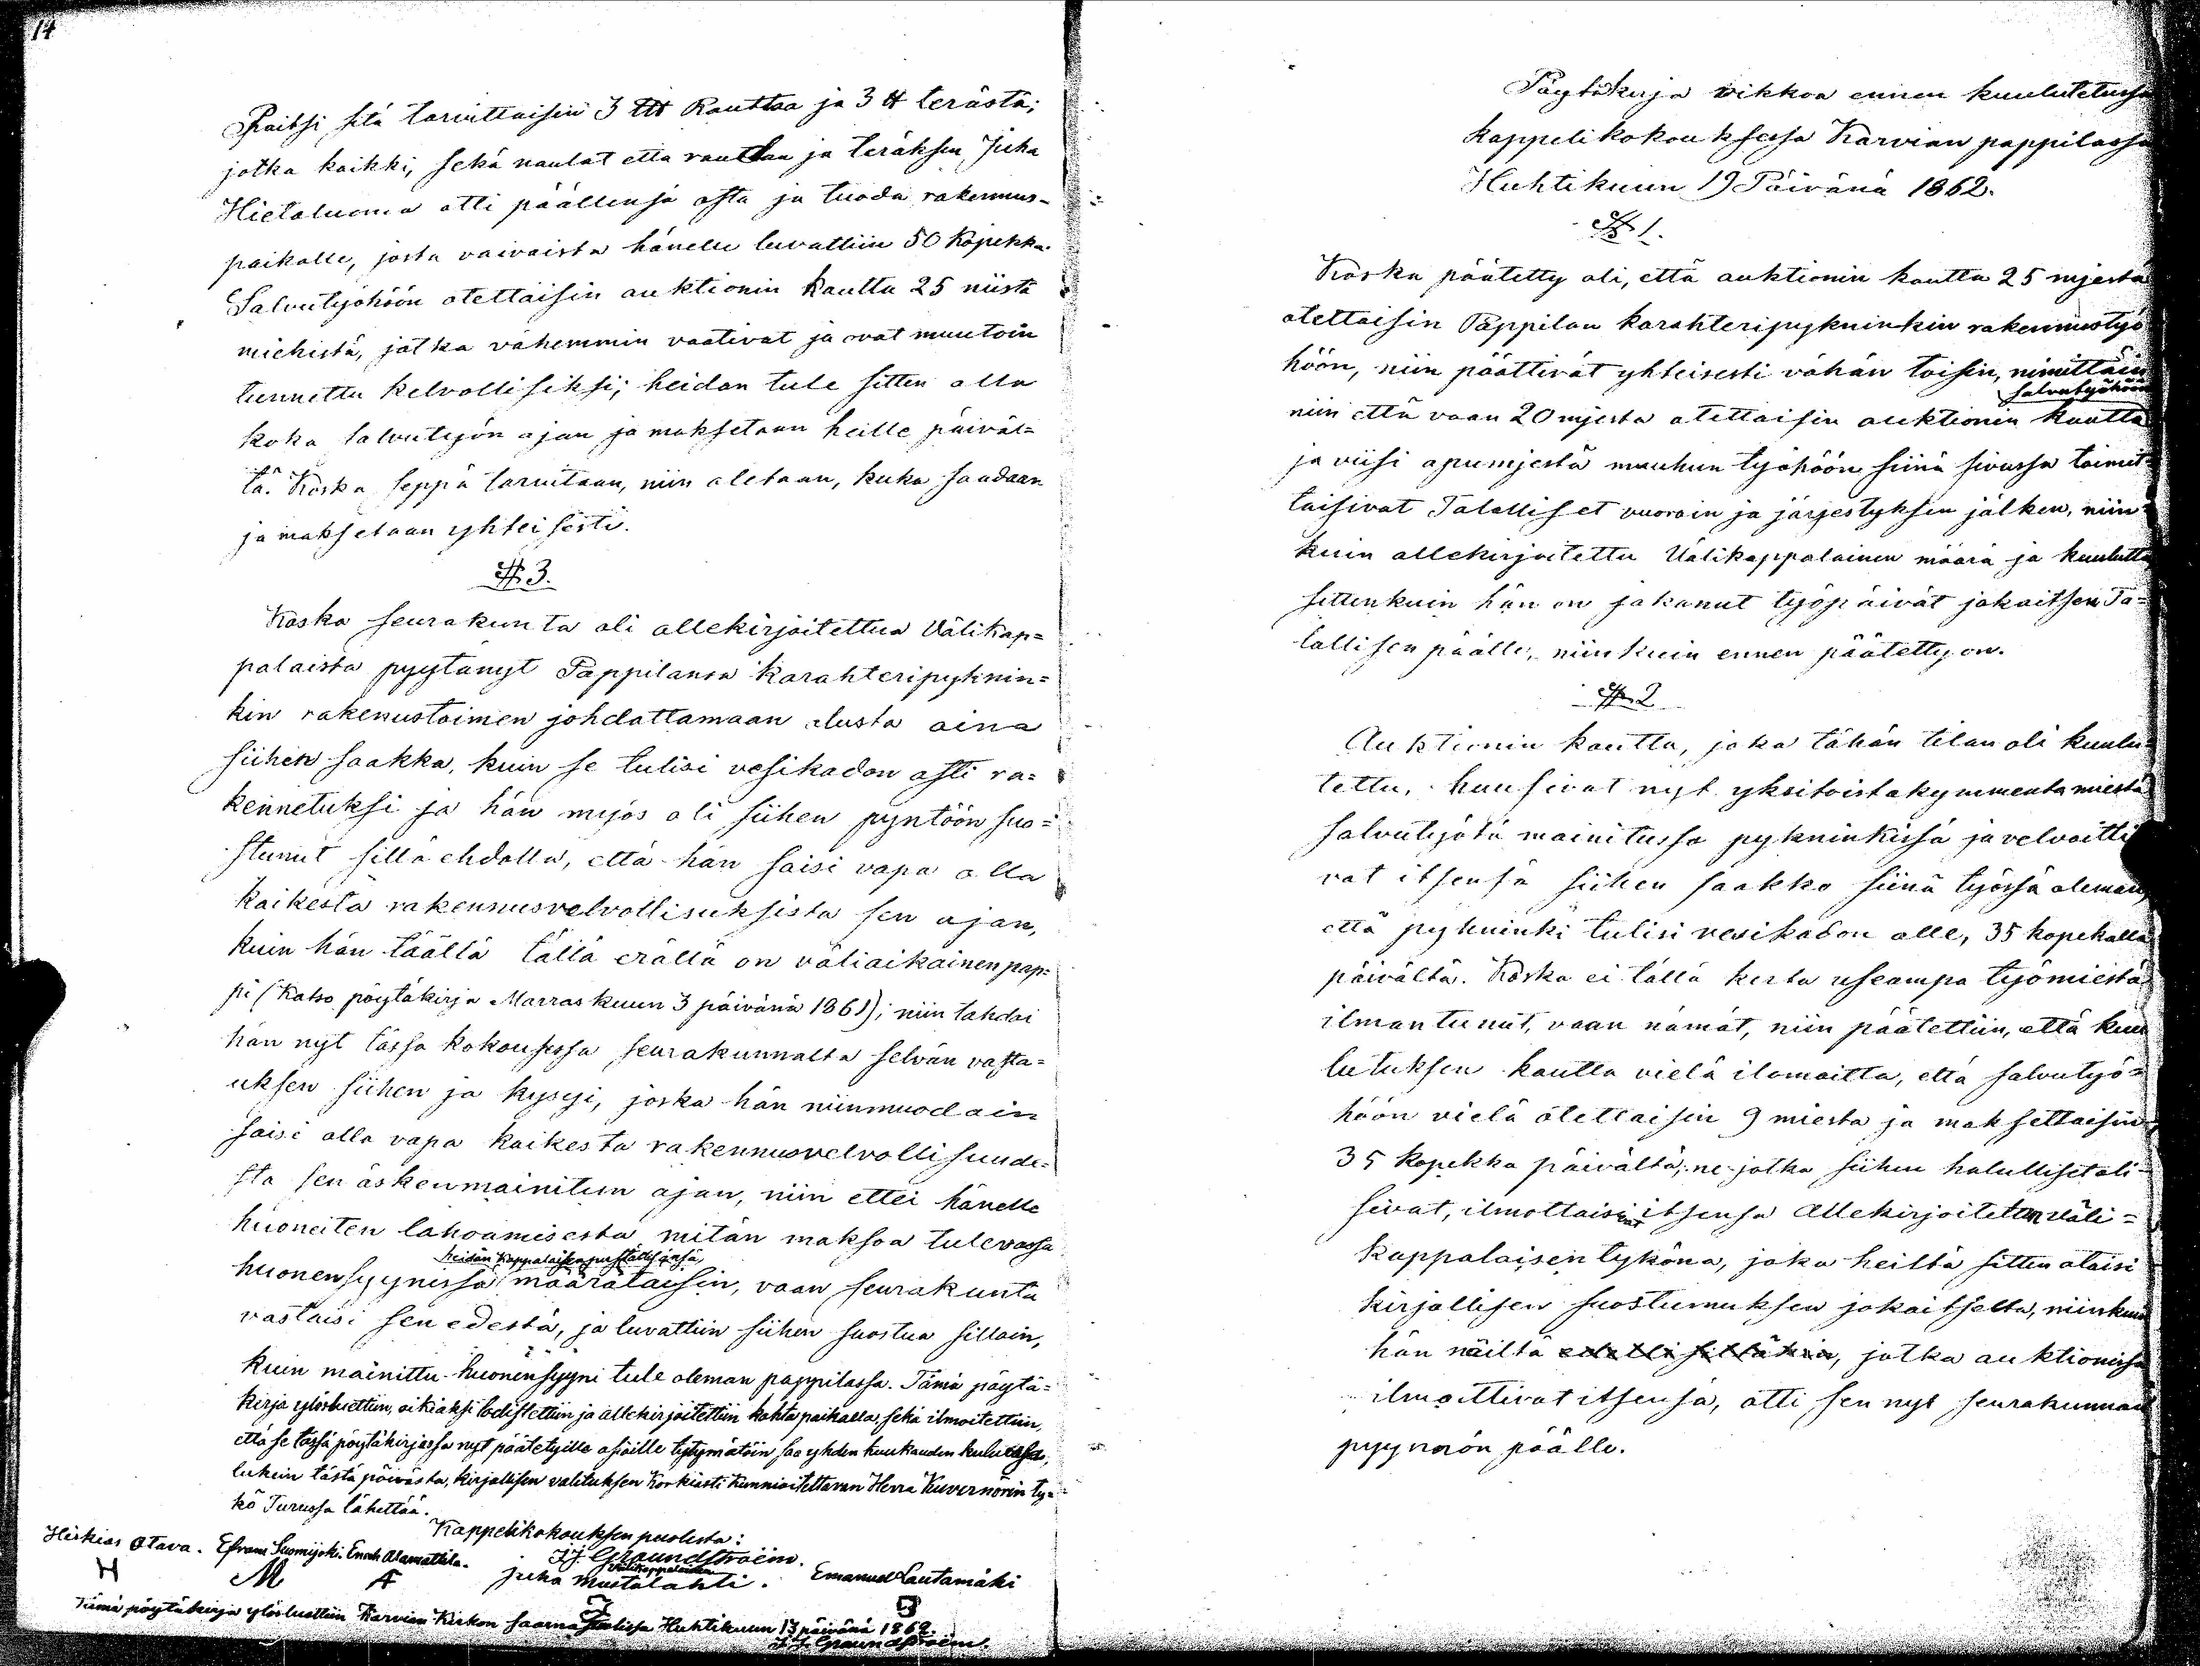 14
Paitsi sitä tarvittaisiin 3 ttt Rauttaa ja 3 tt terästä;
jotka kaikki, sekä naulat että rautan ja teräksen, Juha
Hietaluoma otti päällensä osta ja tuoda rakennus-
paikalle, josta vaivaista hänelle luvattiin 50 Kopekka.
Salvutyöhöön otettaisin auktionin kautta 25 niistä
miehistä, jotka vähemmin vaativat ja ovat muutoin
tunnettu kelvollisiksi; heidän tule sitten olla
koko salvutyön ajan ja maksetaan heille päiväl=
tä. Koska seppä tarvitaan, niin otetaan, kuka saadaan
ja maksetaan yhteisesti.
§ 3.
Koska seurakunta oli allekirjoitettua Välikap=
palaista pyytänyt Pappilansa karahteripyknin=
kin rakenustoimen johdattamaan alusta aina
siihen saakka, kuin se tulisi vesikadon asti ra=
kennetuksi ja hän myös oli siihen pyntöön suo=
stunut sillä ehdolla, että hän saisi vapa olla
kaikesta rakennusvelvollisuksista sen ajan,
kuin hän täällä tällä erällä on väliaikainen pap=
pi (Katso pöytäkirja Marraskuun 3 päivänä 1861); niin tahdoi
hän nyt tässä kokouksessa seurakunnalta selvän vasta=
uksen siihen ja kysyi, joska hän niinmuodoin
saisi olla vapa kaikesta rakennusvelvollisuude=
sta sen äskenmainitun ajan, niin ettei hänelle
huoneiten lahoamisesta mitän maksoa tulevassa
heidän Kappalaisen puställisänsä
huonensyynissä määrätaisin, vaan seurakunta
vastaisi sen edestä, ja luvattiin siihen suostua silloin,
kuin mainittu huonensyyni tule oleman pappilassa. Tämä pöytä=
kirja ylösluettiin, oikiaksi todistettiin ja allekirjoitettiin kahta paikalla, sekä ilmoitettiin,
että se tässä pöytäkirjassa nyt päätetyille asioille tytymätöin saa yhden kuukauden kuluessa,
lukein tästä päivästä, kirjallisen valituksen Korkiasti Kunnioitettavan Herra Kuvernörin ty=
kö Turussa lähettää.
Kappelikokouksen puolesta:
Hiskias Otava. Efraim Suomijoki. Enoch Alamattila. J.J. Graundstroëm.
Välikappalainen
Juha Mustalahti. Emanuel Lautamäki
Tämä pöytäkirja ylösluettiin Karvian Kirkon saarnastuolissa Huhtikuun 13 päivänä 1862.
J J Graundstroëm.
Pöytäkirja viikkoa ennen kuulutetussa
kappelikokouksessa Karvian pappilassa
Huhtikuun 19 Päivänä 1862.
§ 1.
Koska päätetty oli, että auktionin kautta 25 mjestä
otettaisin Pappilan karahteripykninkin rakennustyö
höön, niin päättivät yhteisesti vähän toisin, nimittäin
salvutyöhöön
niin että vaan 20 mjestä otettaisin auktionin kautta
ja viisi apumjestä muuhun työhöön siinä sivussa toimit=
taisivat Talolliset vuoroin ja järjestyksen jälken, niin=
kuin allekirjoitettu Välikappalainen määrä ja kuulutta
sittenkuin hän on jakanut työpäivät jokaitsen Ta=
lollisen päälle, niinkuin ennen päätetty on.
§ 2
Auktionin kautta, joka tähän tilan oli kuulu=
tettu, huusivat nyt yksitoistakymmentä miestä
salvutyötä mainitussa pykninkissä ja velvoitti
vat itsensä siihen saakka siinä työssä oleman,
että pykninki tulisi vesikadon alle, 35 kopekalla
päivältä. Koska ei tällä kerta useampa työmiestä
ilmantunut, vaan nämät, niin päätettiin, että kuu
lutuksen kautta vielä ilomoitta, että salvutyö=
höön vielä otettaisin 9 miestä ja maksettaisiin
35 kopekka päivältä; ne jotka siihen halulliset oli=
sivat, ilmottaisivat itsensä Allekirjoitetun väli=
kappalaisen tykönä, joka heiltä sitten otaisi
kirjallisen suostumuksen jokaitselta, niinkuin
hän näiltä, jotka auktionissa
ilmoittivat itsensä, otti sen nyt seurakunnan
pyynnön päälle.